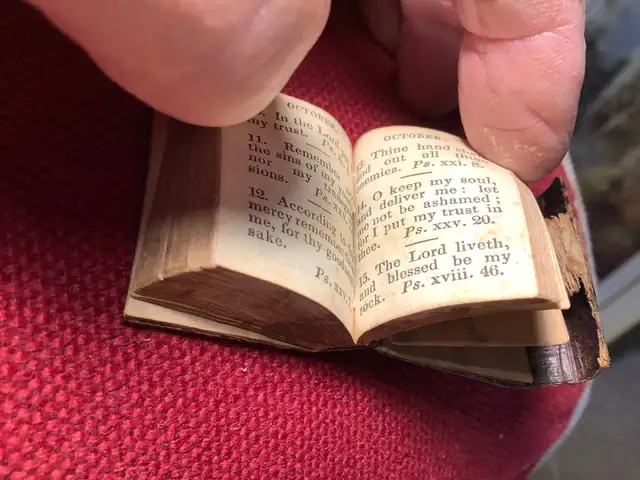 OCTOBER.
In the Lord
my trust. Ps.
11. Remember
the sins of my
nor my
sions. Ps.
12. According
mercy remember
me, for thy
sake.
Ps. xxv.
OCTOBER.
Thine hand
out all
Ps. xxi. 8.
O keep my soul,
and deliver me: let
me not be ashamed;
for I put my trust in
thee. Ps. xxv. 20.
15. The Lord liveth,
and blessed be my
rock. Ps. xviii. 46.